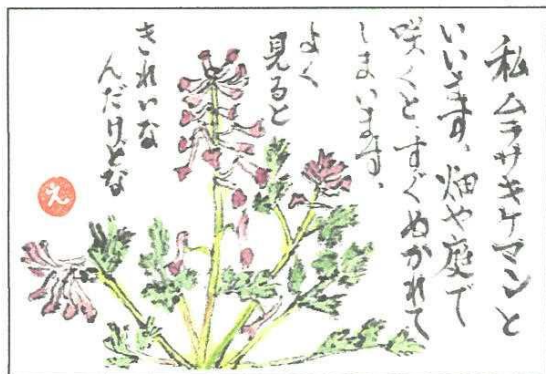 私ムラサキケマンと
いいます、畑や庭で
咲くとすぐぬかれて
しまいます、
よく
見ると
きれいな
んだけどな
え